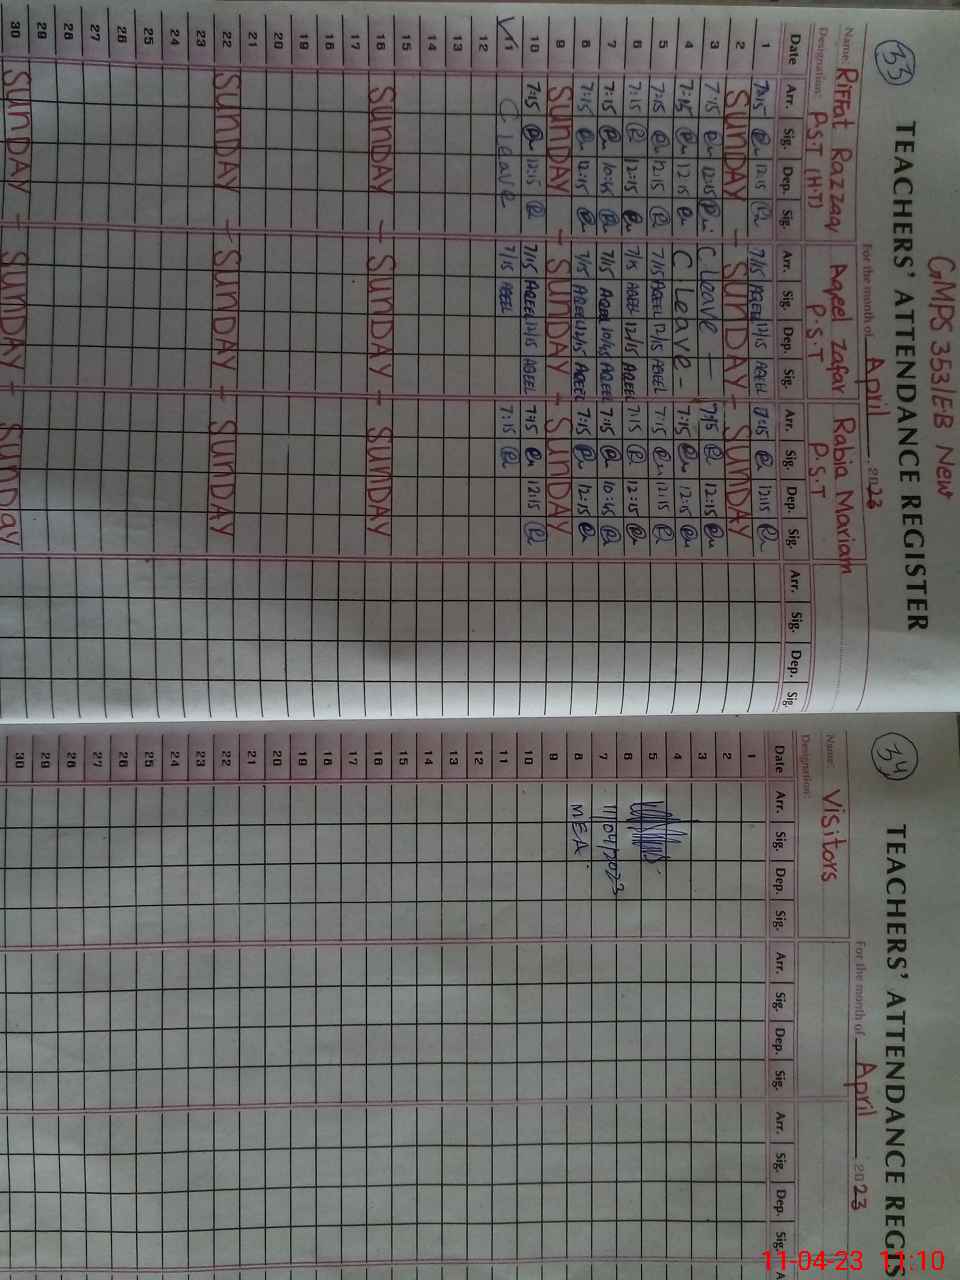 GMPS 353/EB New
33
TEACHERS' ATTENDANCE REGISTER
For the month of April 2023
Name: Riffat Razzaq Aqeel Zafar Rabia Mariam
Designation: P.S.T (H.T) P.S.T P.S.T
Date Arr. Sig. Dep. Sig. Arr. Sig. Dep. Sig. Arr. Sig. Dep. Sig. Arr. Sig. Dep. Sig.
1 7:15 12:15 7/15 AQEEL 12/15 AQEEL 7:15 12:15
2 SUNDAY - SUNDAY - SUNDAY
3 7:15 12:15 C leave - 7:15 12:15
4 7:15 12:15 C leave - 7:15 12:15
5 7:15 12:15 7/15 AQEEL 12/15 AQEEL 7:15 12:15
6 7:15 12:15 7/15 AQEEL 12/15 AQEEL 7:15 12:15
7 7:15 10:45 7/15 AQEEL 10/45 AQEEL 7:15 10:45
8 7:15 12:15 7/15 AQEEL 12/15 AQEEL 7:15 12:15
9 SUNDAY - SUNDAY - SUNDAY
10 7:15 12:15 7/15 AQEEL 12/15 AQEEL 7:15 12:15
11 C leave 7/15 AQEEL 7:15
12
13
14
15
16 SUNDAY - SUNDAY - SUNDAY
17
18
19
20
21
22 SUNDAY - SUNDAY - SUNDAY
23
24
25
26
27
28
29
30 SUNDAY - SUNDAY - SUNDAY
34
TEACHERS' ATTENDANCE REGIS
For the month of April 2023
Name: Visitors
Designation:
Date Arr. Sig. Dep. Sig. Arr. Sig. Dep. Sig. Arr. Sig. Dep. Sig. A
1
2
3
4
5
6
7 11/04/2023
8 MEA
9
10
11
12
13
14
15
16
17
18
19
20
21
22
23
24
25
26
27
28
29
30
11-04-23 11:10